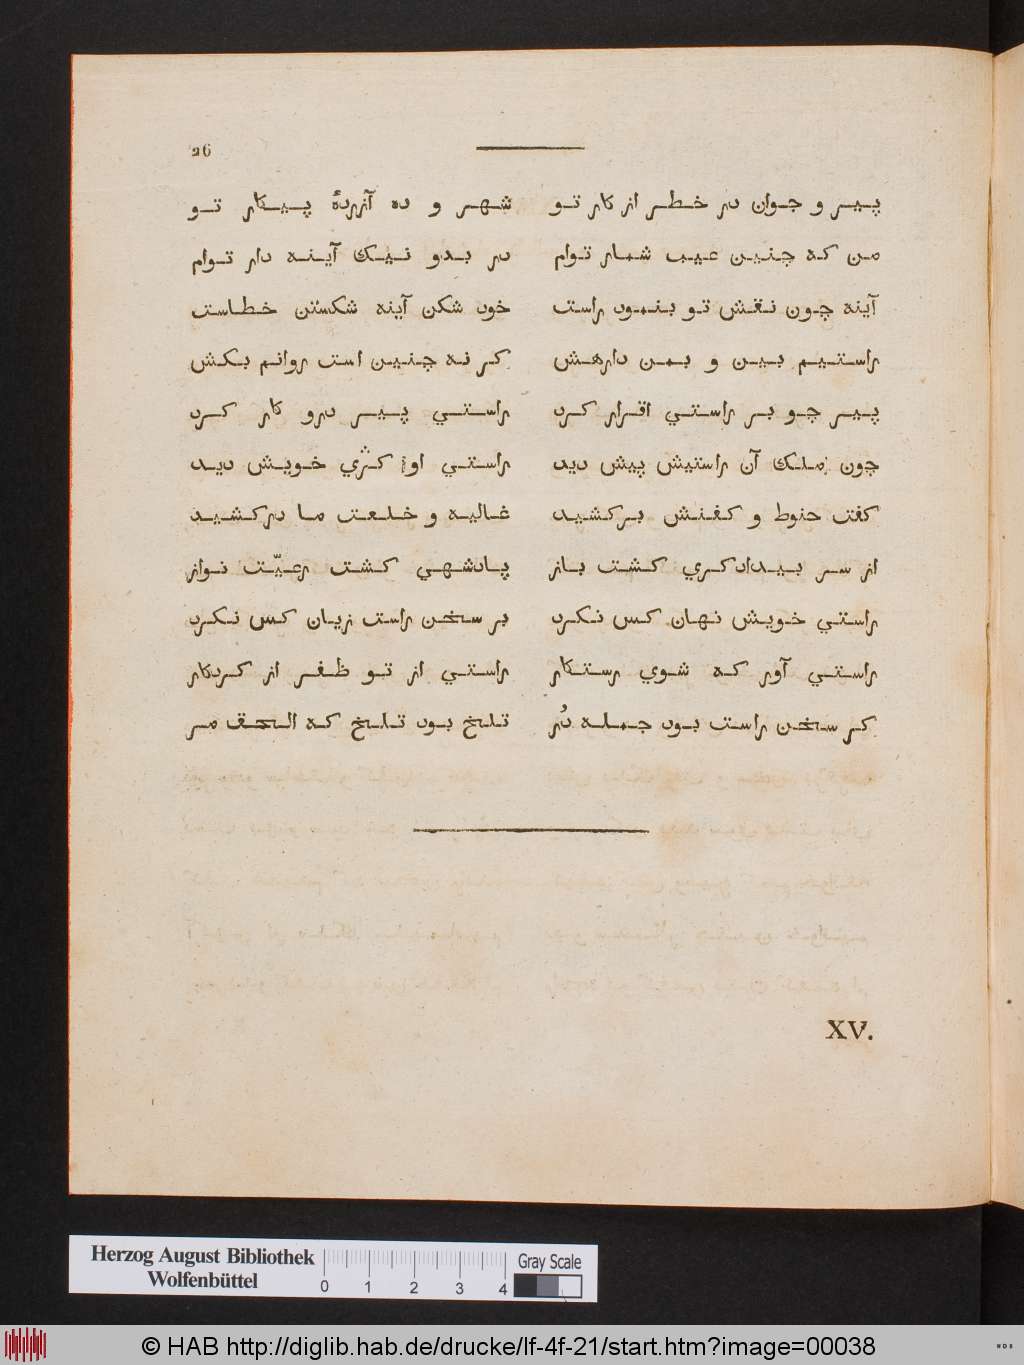 26
پیر و جوان در خطر از کار تو شهر و ده آزردهٔ پیکار تو
من که چنین عیب شمار توام در بدو نیک آینه دار توام
آینه چون نقش تو بنمود راست خود شکن آینه شکستن خطاست
راستیم بین و بمن دارهش کر نه چنین است روانم بکش
پیر چو بر راستي اقرار کرد راستي پیر درو کار کرد
چون ملک آن راستیش پیش دید راستي او کژي خویش دید
کفت حنوط و کفنش برکشید غالیه و خلعت ما درکشید
از سر بیدادکري کشت باز پادشهي کشت رعیّت نواز
راستي خویش نهان کس نکرد بر سخن راست زیان کس نکرد
راستي آور که شوي رستکار راستي از تو ظفر از کردکار
کر سخن راست بود جمله دُر تلخ بود تلخ که الحق مر
XV.
Herzog August Bibliothek
Wolfenbüttel
0 1 2 3 4
Gray Scale
© HAB http://diglib.hab.de/drucke/lf-4f-21/start.htm?image=00038